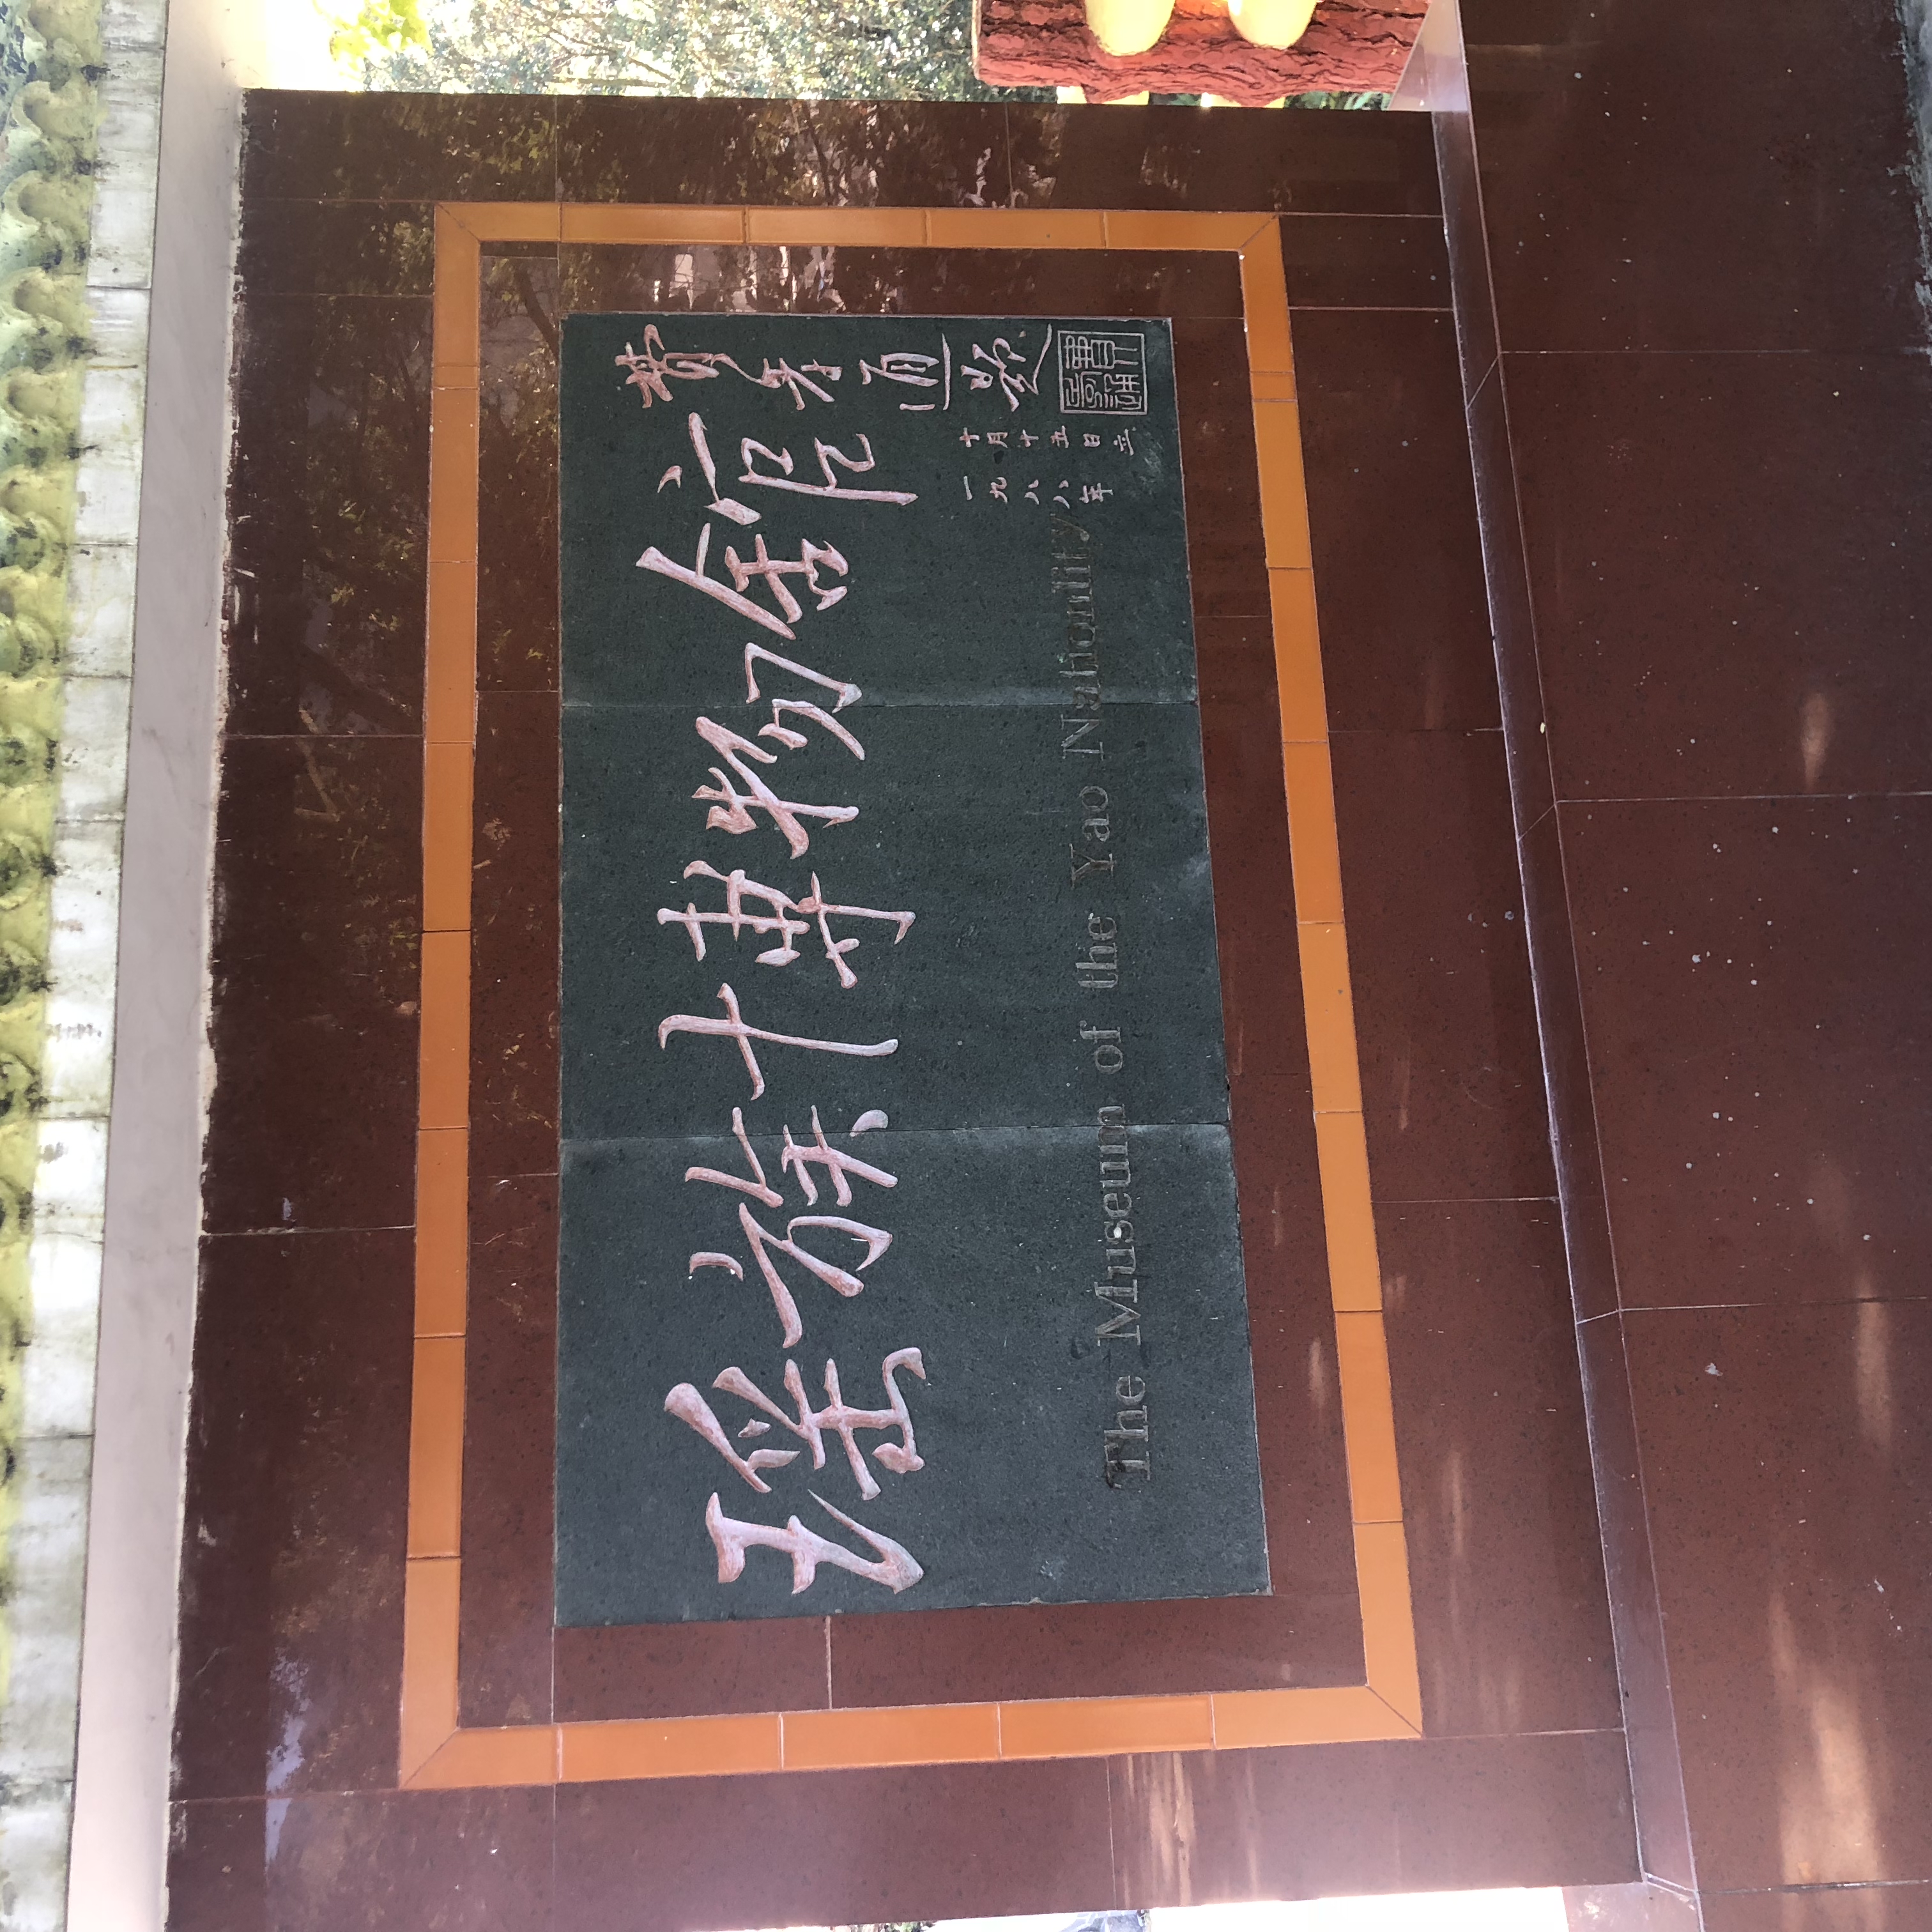 瑶族博物舘
费孝通题
The Museum of the Yao Nationality
一九八八年
十月十五日立